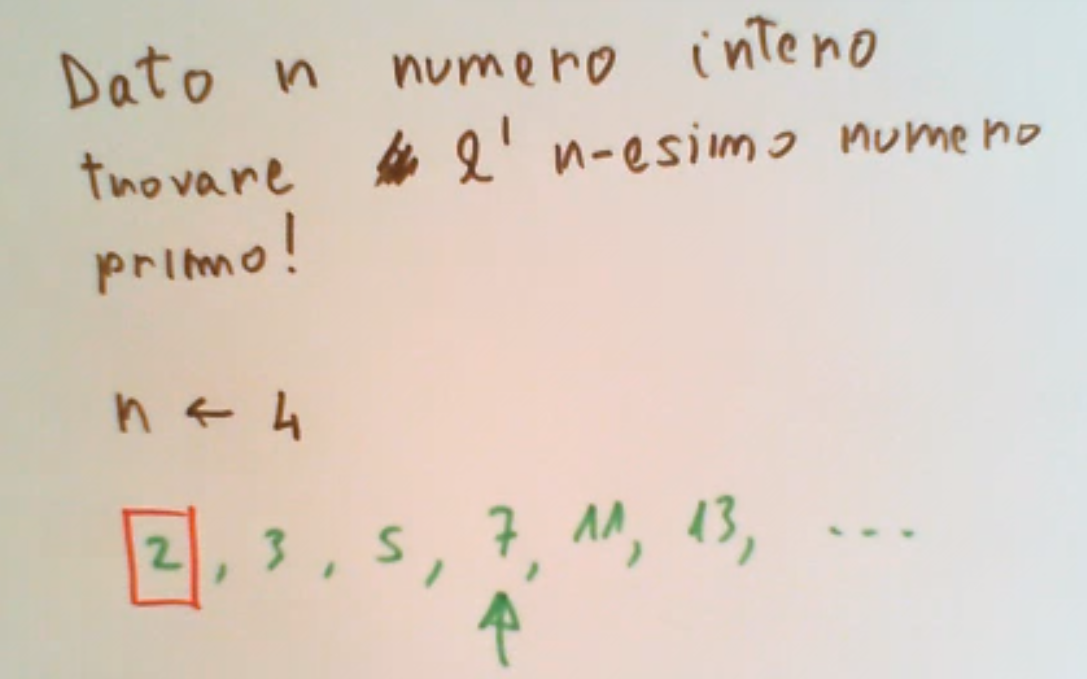 Dato n numero intero
trovare l' n-esimo numero
primo!
n ← 4
2, 3, 5, 7, 11, 13, ...